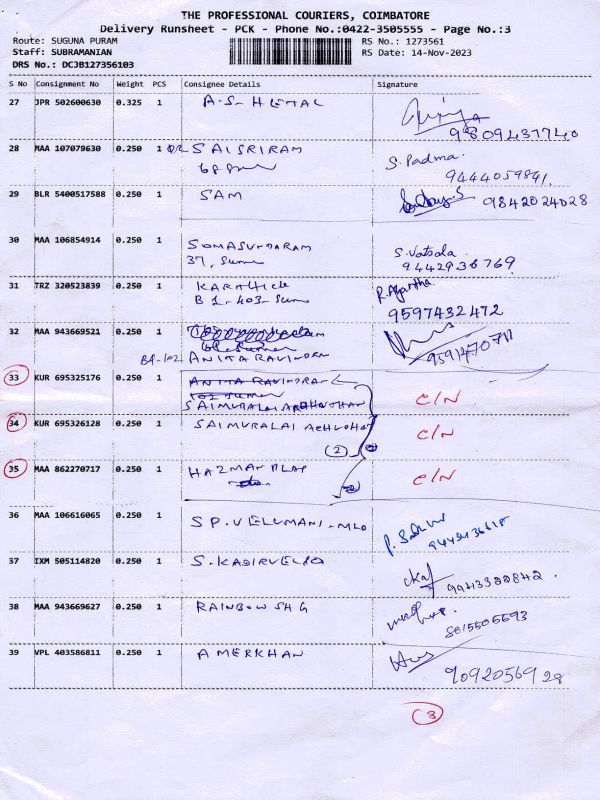 THE PROFESSIONAL COURIERS, COIMBATORE
Delivery Runsheet - PCK - Phone No.:0422-3505555 - Page No.:3
Route: SUGUNA PURAM
RS No.: 1273561
Staff: SUBRAMANIAN
RS Date: 14-Nov-2023
DRS No.: DCJB127356103
S No Consignment No Weight PCS Consignee Details Signature
27 JPR 502600630 0.325 1 A.S. HEMAL
9809437740
28 MAA 107079630 0.250 1 SAISRIRAM S. Padma.
9444059841
29 BLR 5400517588 0.250 1 SAM 9842024028
30 MAA 106854914 0.250 1 SOMASUNDARAM S. Vatsala
37, 9442936769
31 TRZ 320523839 0.250 1 KARTHICK
B1-403- 9597432472
32 MAA 943669521 0.250 1
ANITA RAVINDRAN
33 KUR 695325176 0.250 1 ANITA RAVINDRAN
SAIMURALAI C/N
34 KUR 695326128 0.250 1 SAIMURALAI C/N
(2)
35 MAA 862270717 0.250 1 C/N
36 MAA 106616065 0.250 1 S.P. VELUMANI-MLA
37 IXM 505114820 0.250 1 S. KADIRVELOO
38 MAA 943669627 0.250 1 RAINBOW SHG
39 VPL 403586811 0.250 1 AMERKHAN
9092056928
3